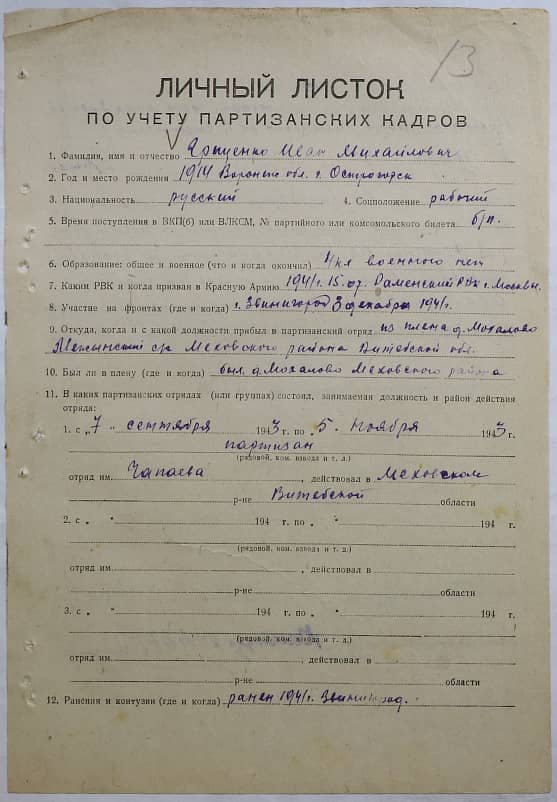 13
ЛИЧНЫЙ ЛИСТОК
ПО УЧЕТУ ПАРТИЗАНСКИХ КАДРОВ
1. Фамилия, имя и отчество Иван Михайлович
2. Год и место рождения 1914 Воронеж обл. г. Острогорск
3. Национальность русский 4. Соцположение рабочий
5. Время поступления в ВКП(б) или ВЛКСМ, № партийного или комсомольского билета б/п.
6. Образование: общее и военное (что и когда окончил) 4 кл военного нет
7. Каким РВК и когда призван в Красную Армию 1941 г. 15.07. Раменский РВК г. Москвы.
8. Участие на фронтах (где и когда) г. Звинигород 3 декабря 1941 г.
9. Откуда, когда и с какой должности прибыл в партизанский отряд из плена д. Мохалово
с/с Меховского района Витебской обл.
10. Был ли в плену (где и когда) был д. Мохалово Меховского района
11. В каких партизанских отрядах (или группах) состоял, занимаемая должность и район действия
отряда:
1. с „7 „ сентября 1943 г. по „5. ноября 1943 г.
партизан
(рядовой, ком. взвода и т. д.)
отряд им. Чапаева, действовал в Меховском
р-не Витебской области
2. с „ " 194 г. по " 194 г.
(рядовой, ком. взвода и т. д.)
отряд им. , действовал в
р-не области
3. с „ " 194 г. по „ " 194 г.
(рядовой, ком. взвода и т. д.)
отряд им. , действовал в
р-не области
12. Ранения и контузии (где и когда) ранен 1941 г. Звинигород.